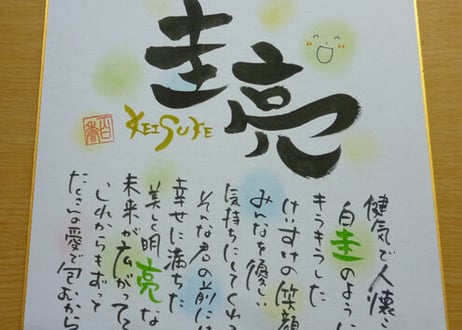 圭亮
KEISUKE
健気で人懐
白圭のように
きらきらした
けいすけの笑顔
みんなを優しい
気持ちにしてくれ
そんな君の前には
幸せに満ちた
美しく明亮な
未来が広がって
これからもずっと
たくさんの愛で包むから